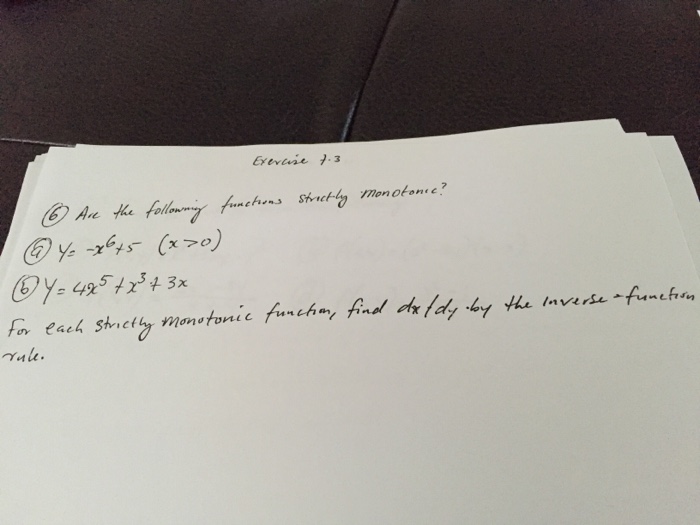 Exercise 7.3
⑥ Are the following functions strictly monotonic?
ⓐ y = -x⁶+5 (x>0)
ⓑ y = 4x⁵ + x³ + 3x
For each strictly monotonic function, find dx/dy by the inverse-function
rule.